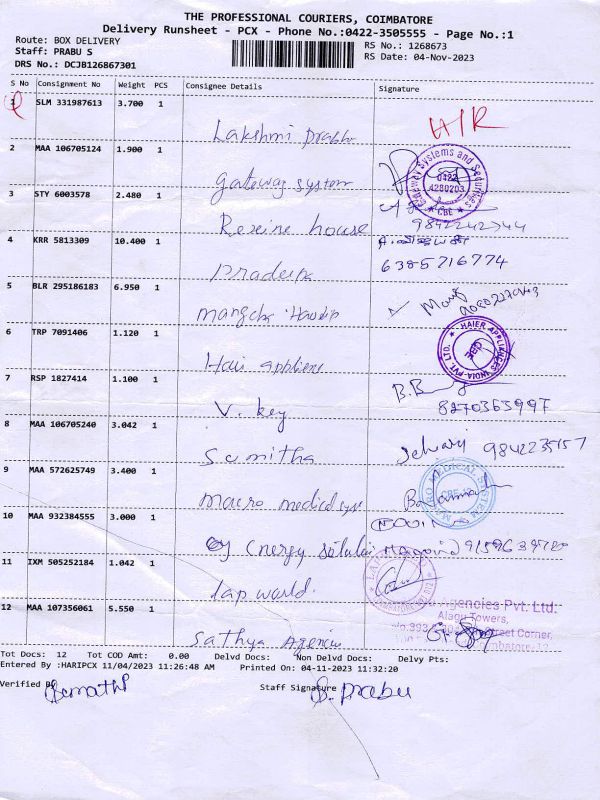 THE PROFESSIONAL COURIERS, COIMBATORE
Delivery Runsheet - PCX - Phone No.:0422-3505555 - Page No.:1
Route: BOX DELIVERY
RS No.: 1268673
Staff: PRABU S
RS Date: 04-Nov-2023
DRS No.: DCJB126867301
S No Consignment No Weight PCS Consignee Details Signature
1 SLM 331987613 3.700 1
Lakshmi Prabhu H/R
2 MAA 106705124 1.900 1
gateway system
Gateway Systems and Securities
0422
4280203
CBE
3 STY 6003578 2.480 1
Rexine house 9842242744
4 KRR 5813309 10.400 1
Pradeep 6385716774
5 BLR 295186183 6.950 1
6 TRP 7091406 1.120 1
Hair appliene
HAIER APPLIANCES INDIA PVT. LTD.
CBE
7 RSP 1827414 1.100 1
V. key 8270363997
8 MAA 106705240 3.042 1
Sumitha Selvari 9842235157
9 MAA 572625749 3.400 1
macro medical sys
MACRO MEDICAL SYSTEM
10 MAA 932384555 3.000 1
energy
11 IXM 505252184 1.042 1
lap world.
12 MAA 107356061 5.550 1
Sathya Agencies
Agencies Pvt. Ltd.
Alagu Towers,
Street Corner,
Tot Docs: 12 Tot COD Amt: 0.00 Delvd Docs: Non Delvd Docs: Delvy Pts:
Entered By :HARIPCX 11/04/2023 11:26:48 AM Printed On: 04-11-2023 11:32:20
Verified By Staff Signature S. Prabu